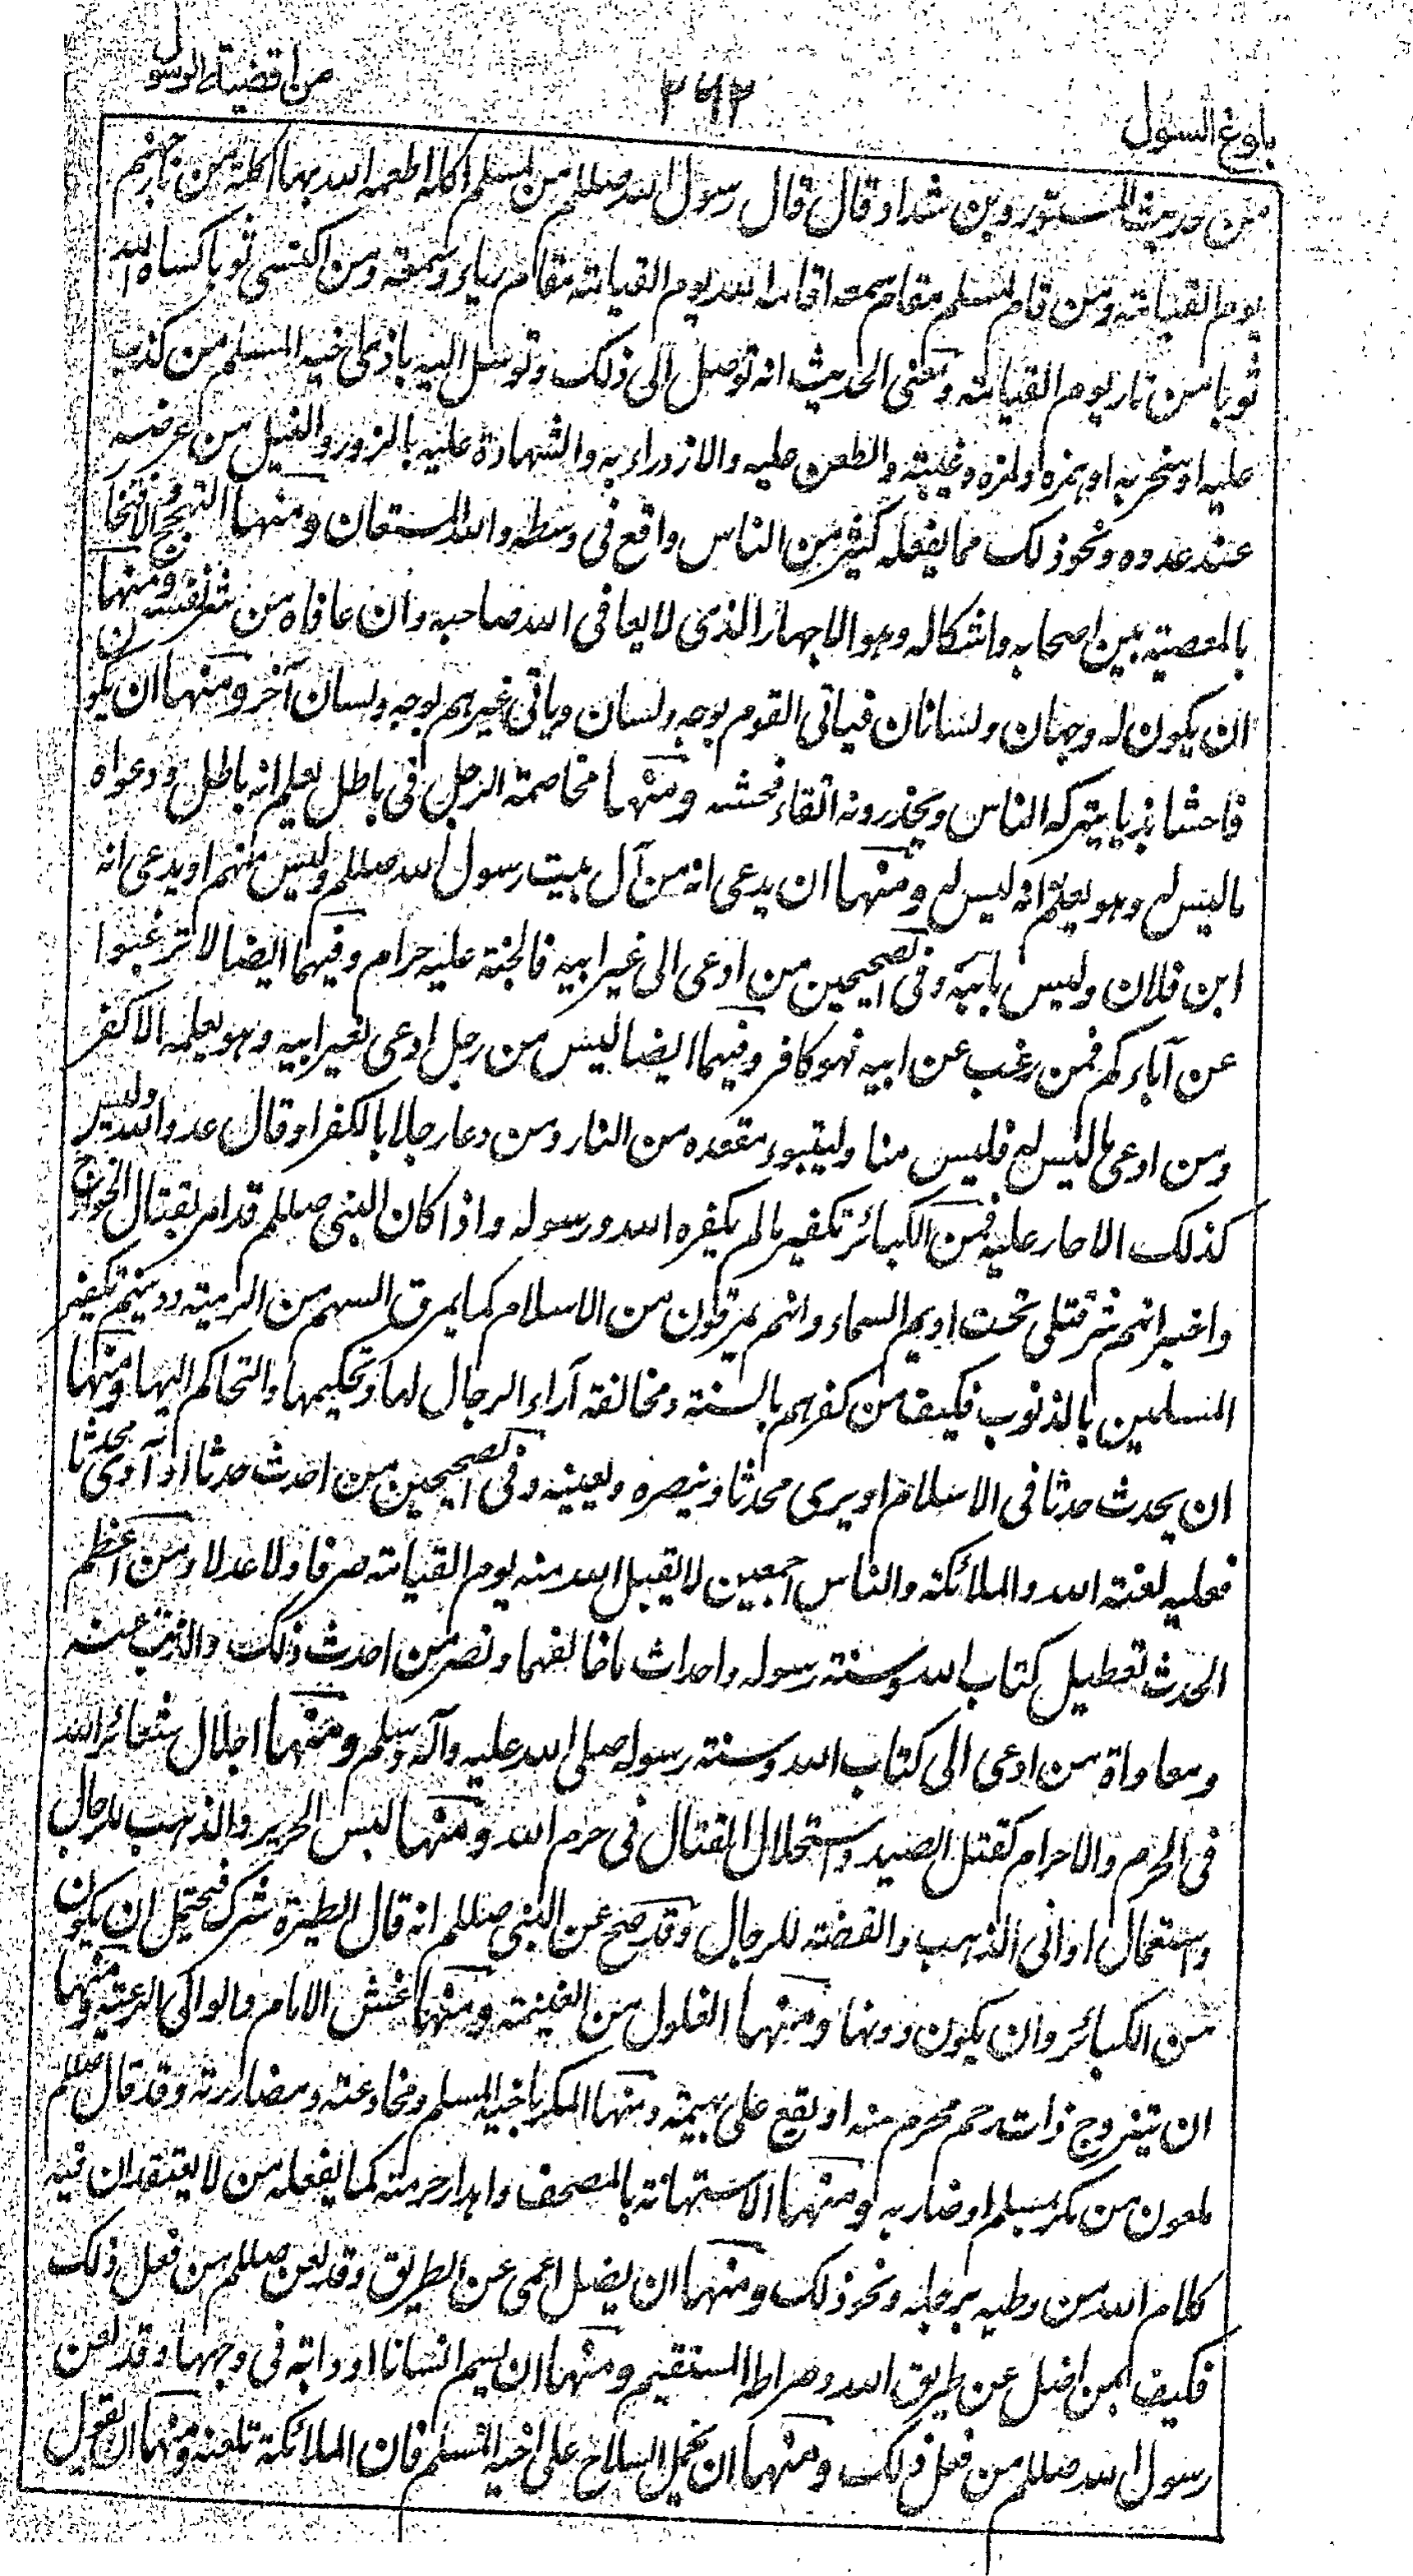 بلوغ السئول
٢٦٢
من اقضية الرسول
من حديث المستورد بن شداد قال قال رسول الله صللم من لمسلم اكلة اطعمه الله بها اكلة من نار جهنم
يوم القيامة ومن قام لمسلم مقام سمعة اقامه الله يوم القيامة مقام رياء وسمعة ومن اكتسى ثوبا كساه الله
ثوبا من نار يوم القيامة ومعنى الحديث انه توصل الى ذلك وتوسل اليه باذى اخيه المسلم من كذب
عليه او سخر به او همزه او لمزه وغيبته والطعن عليه والازدراء به والشهادة عليه بالزور والنيل من عرضه
عند عدوه ونحو ذلك مما يفعله كثير من الناس واقع فى وسطه والله المستعان ومنها التبجح والافتخار
بالمعصية بين اصحابه واشكاله وهو الاجهار الذى لا يعافى الله صاحبه وان عافاه من شر نفسه ومنها
ان يكون له وجهان ولسانان فياتى القوم بوجه ولسان وياتى غيرهم بوجه ولسان آخر ومنها ان يكون
فاحشا بذيا يتركه الناس ويحذرونه اتقاء فحشه ومنها مخاصمة الرجل فى باطل يعلم انه باطل ودعواه
ما ليس له وهو يعلم انه ليس له ومنها ان يدعى انه من آل بيت رسول الله صللم وليس منهم او يدعى انه
ابن فلان وليس بابنه وفى الصحيحين من ادعى الى غير ابيه فالجنة عليه حرام وفيهما ايضا لا ترغبوا
عن آبائكم فمن رغب عن ابيه فهو كافر وفيهما ايضا ليس من رجل ادعى لغير ابيه وهو يعلمه الا كفر
ومن ادعى ما ليس له فليس منا وليتبوء مقعده من النار ومن دعا رجلا بالكفر او قال عدو الله وليس
كذلك الا حار عليه فمن الكبائر تكفير مالم يكفره الله ورسوله واذا كان النبى صللم قد امر بقتال الخوارج
واخبر انهم شر قتلى تحت اديم السماء وانهم يمرقون من الاسلام كما يمرق السهم من الرمية ودينهم تكفير
المسلمين بالذنوب فكيف من كفرهم بالسنة ومخالفة آراء الرجال لها وتحكيمها والتحاكم اليها ومنها
ان يحدث حدثا فى الاسلام او يرى محدثا وينصره ويعينه وفى الصحيحين من احدث حدثا او آوى محدثا
فعليه لعنة الله والملائكة والناس اجمعين لا يقبل الله منه يوم القيامة صرفا ولا عدلا ومن اعظم
الحدث تعطيل كتاب الله وسنة رسوله واحداث ما خالفهما ونصر من احدث ذلك والذب عنه
ومعاداة من ادعى الى كتاب الله وسنة رسوله صلى الله عليه وآله وسلم ومنها احلال شعائر الله
فى الحرم والاحرام كقتل الصيد واستحلال القتال فى حرم الله ومنها لبس الحرير والذهب للرجال
واستعمال اوانى الذهب والفضة للرجال وقد صح عن النبى صللم انه قال الطيرة شرك فيحتمل ان يكون
من الكبائر وان يكون دونها ومنها الغلول من الغنيمة ومنها غش الامام والوالى لرعيته ومنها
ان يتزوج ذات رحم محرم منه او يقع على بهيمة ومنها المكر باخيه المسلم ومخادعته ومضاررته وقد قال صللم
ملعون من مكر بمسلم او ضار به ومنها الاستهانة بالمصحف واهدار حرمته كما يفعله من لا يعتقد ان فيه
كلام الله من وطيه برجله ونحو ذلك ومنها ان يضل اعمى عن الطريق وقد لعن صللم من فعل ذلك
فكيف بمن اضل عن طريق الله وصراطه المستقيم ومنها ان يسم انسانا او دابة فى وجهها وقد لعن
رسول الله صللم من فعل ذلك ومنها ان يحمل السلاح على اخيه المسلم فان الملائكة تلعنه ومنها ان يقول